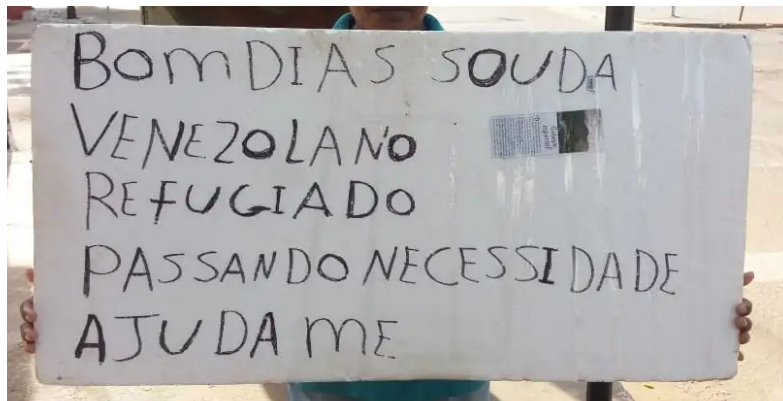 BOM DIAS SOUDA
VENEZOLANO
REFUGIADO
PASSANDO NECESSIDADE
AJUDA ME